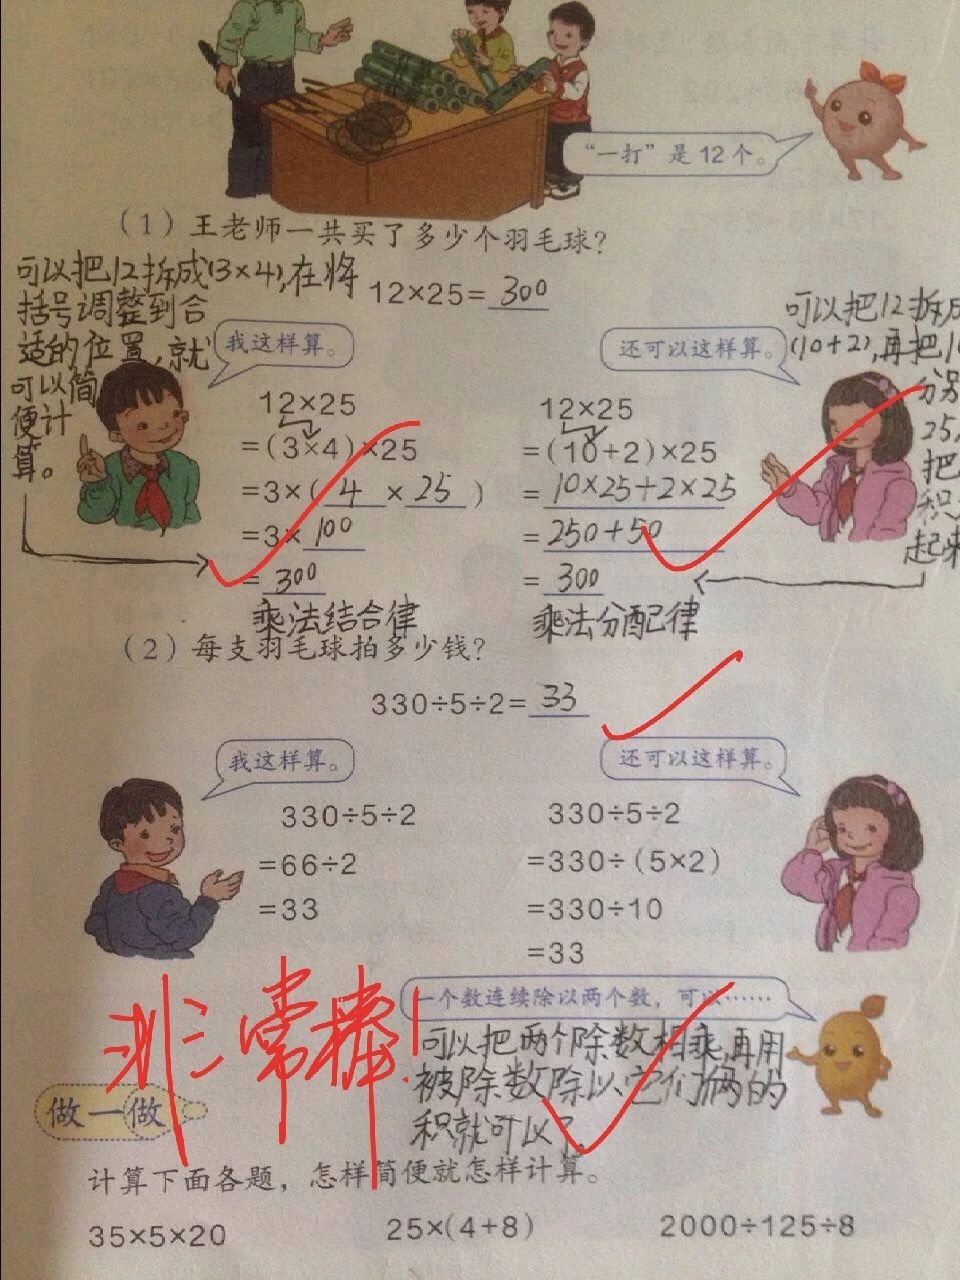 “一打”是12个。
（1）王老师一共买了多少个羽毛球？
可以把12拆成(3×4),在将
括号调整到合
适的位置,就
可以简
便计
算。
12×25=300
可以把12拆成
(10+2),再把10
分别
25,
把
积
起来
我这样算。
12×25
=(3×4)×25
=3×(4×25)
=3×100
=300
乘法结合律
还可以这样算。
12×25
=(10+2)×25
=10×25+2×25
=250+50
=300
乘法分配律
（2）每支羽毛球拍多少钱？
330÷5÷2=33
我这样算。
330÷5÷2
=66÷2
=33
还可以这样算。
330÷5÷2
=330÷(5×2)
=330÷10
=33
非常棒!
一个数连续除以两个数，可以……
可以把两个除数相乘,再用
被除数除以它们俩的
积就可以了。
做一做
计算下面各题，怎样简便就怎样计算。
35×5×20
25×(4+8)
2000÷125÷8